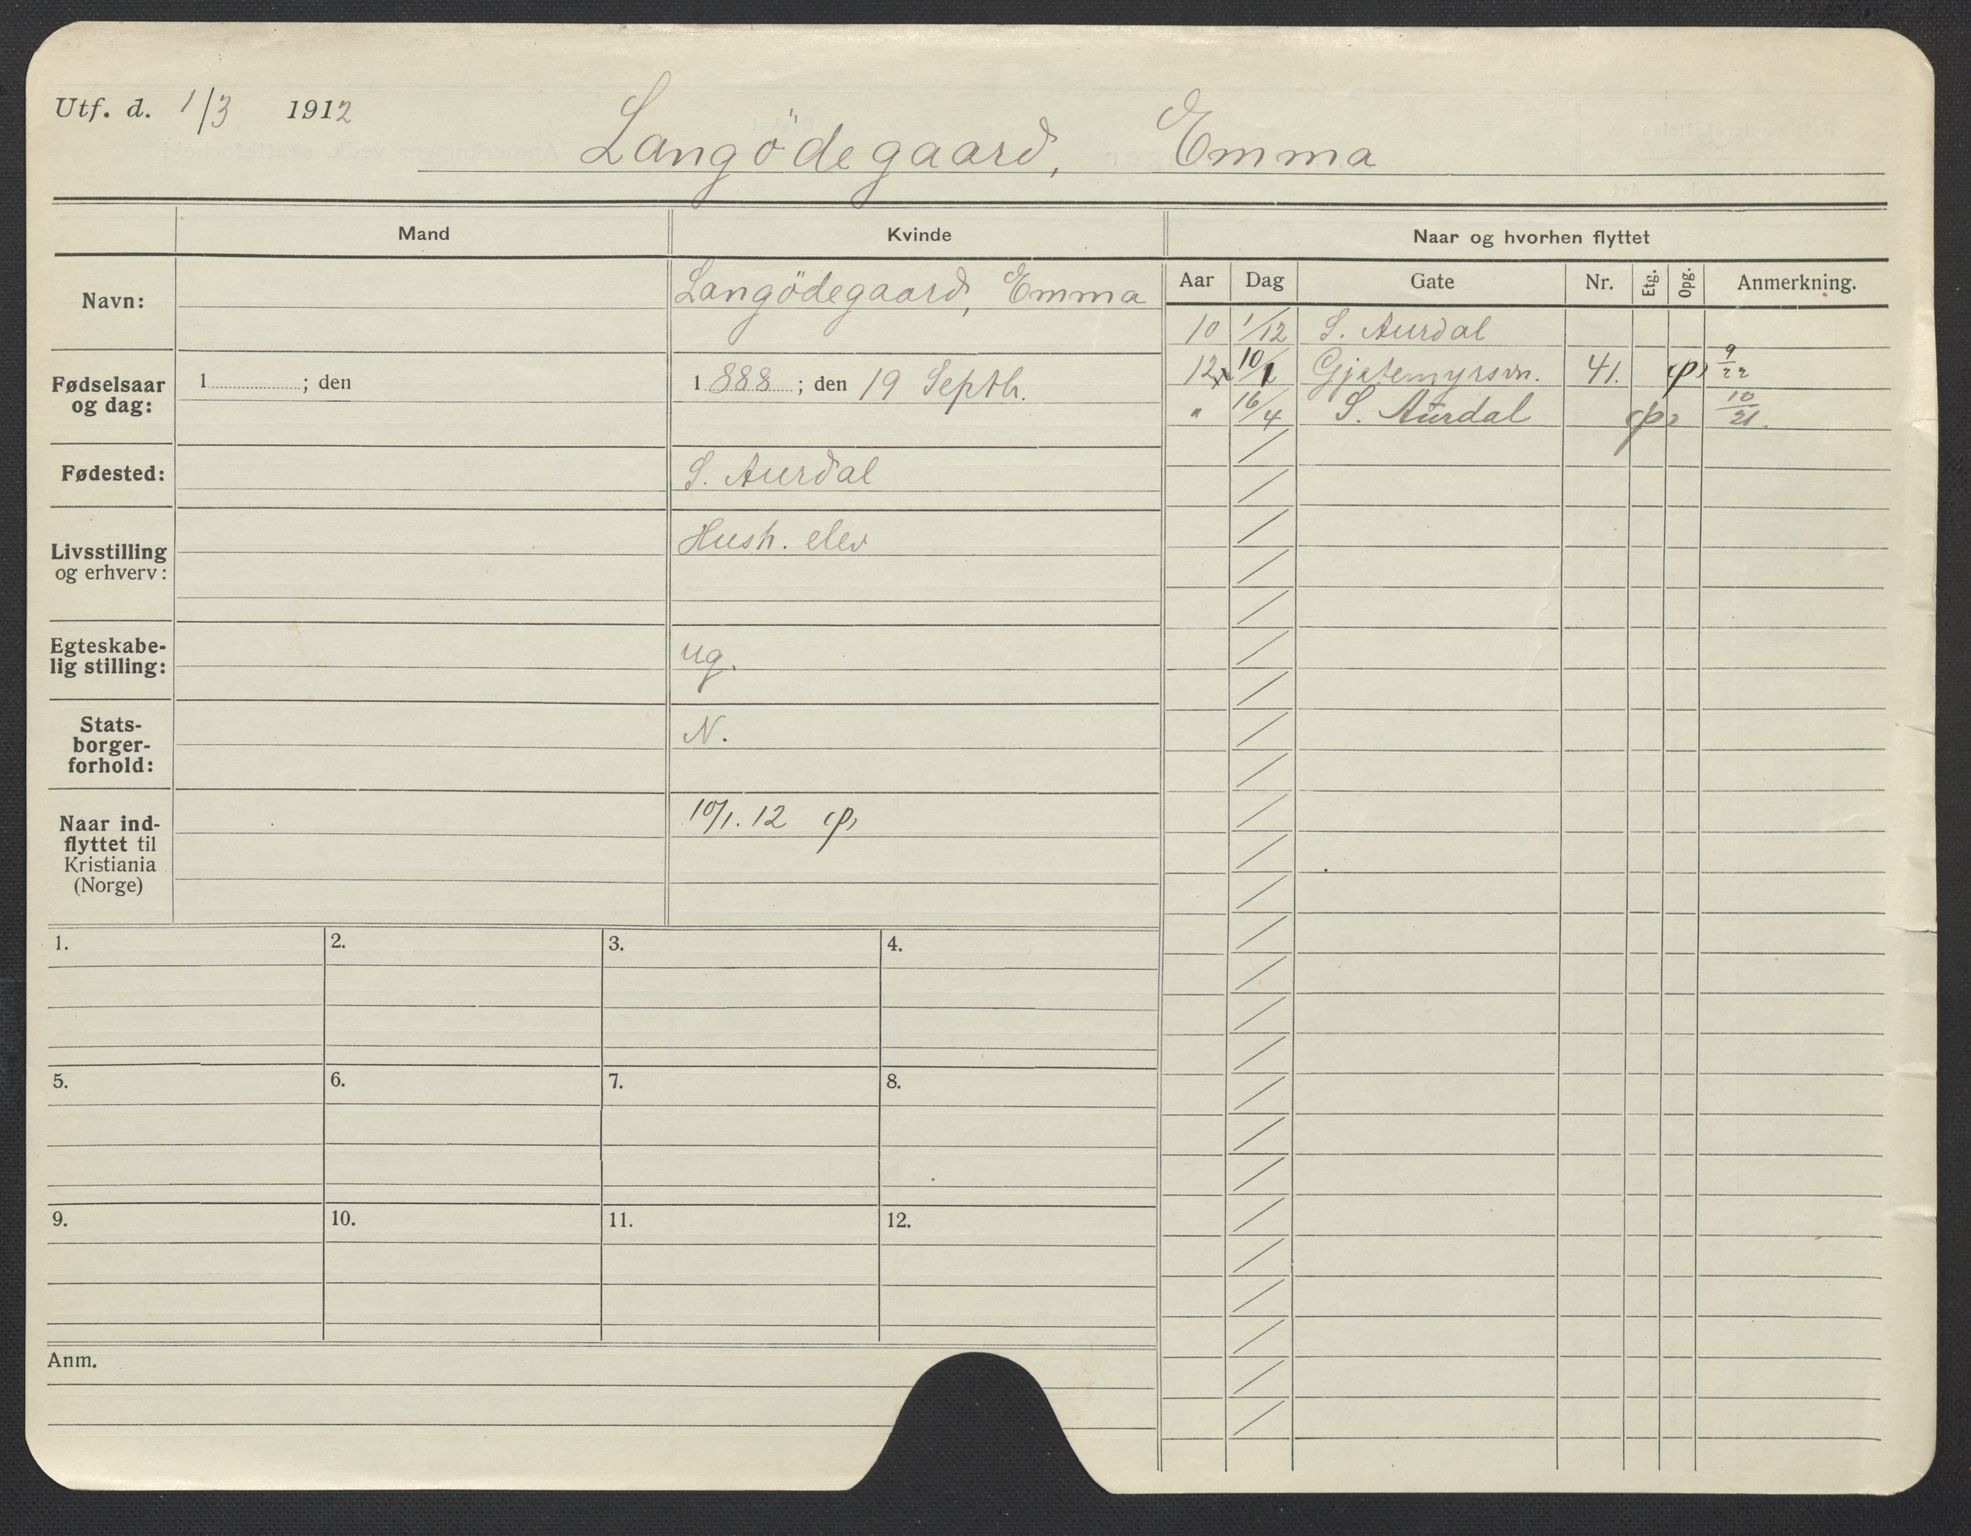 Utf. d. 1/3 1912
Langödegaard, Emma
Mand Kvinde Naar og hvorhen flyttet
Navn: Langödegaard, Emma
Aar Dag Gate Nr. Etg. Opg. Anmerkning.
10 1/12 S. Aurdal
12 10/1 Gjetemyrsvn. 41. 9/22
" 16/4 S. Aurdal 10/21.
Fødselsaar
og dag: 1 ; den 1888 ; den 19 Septbr.
Fødested: S. Aurdal
Livsstilling
og erhverv: Hush. elev
Egteskabe-
lig stilling: ug.
Stats-
borger-
forhold: N.
Naar ind-
flyttet til
Kristiania
(Norge) 10/1. 12
1. 2. 3. 4.
5. 6. 7. 8.
9. 10. 11. 12.
Anm.